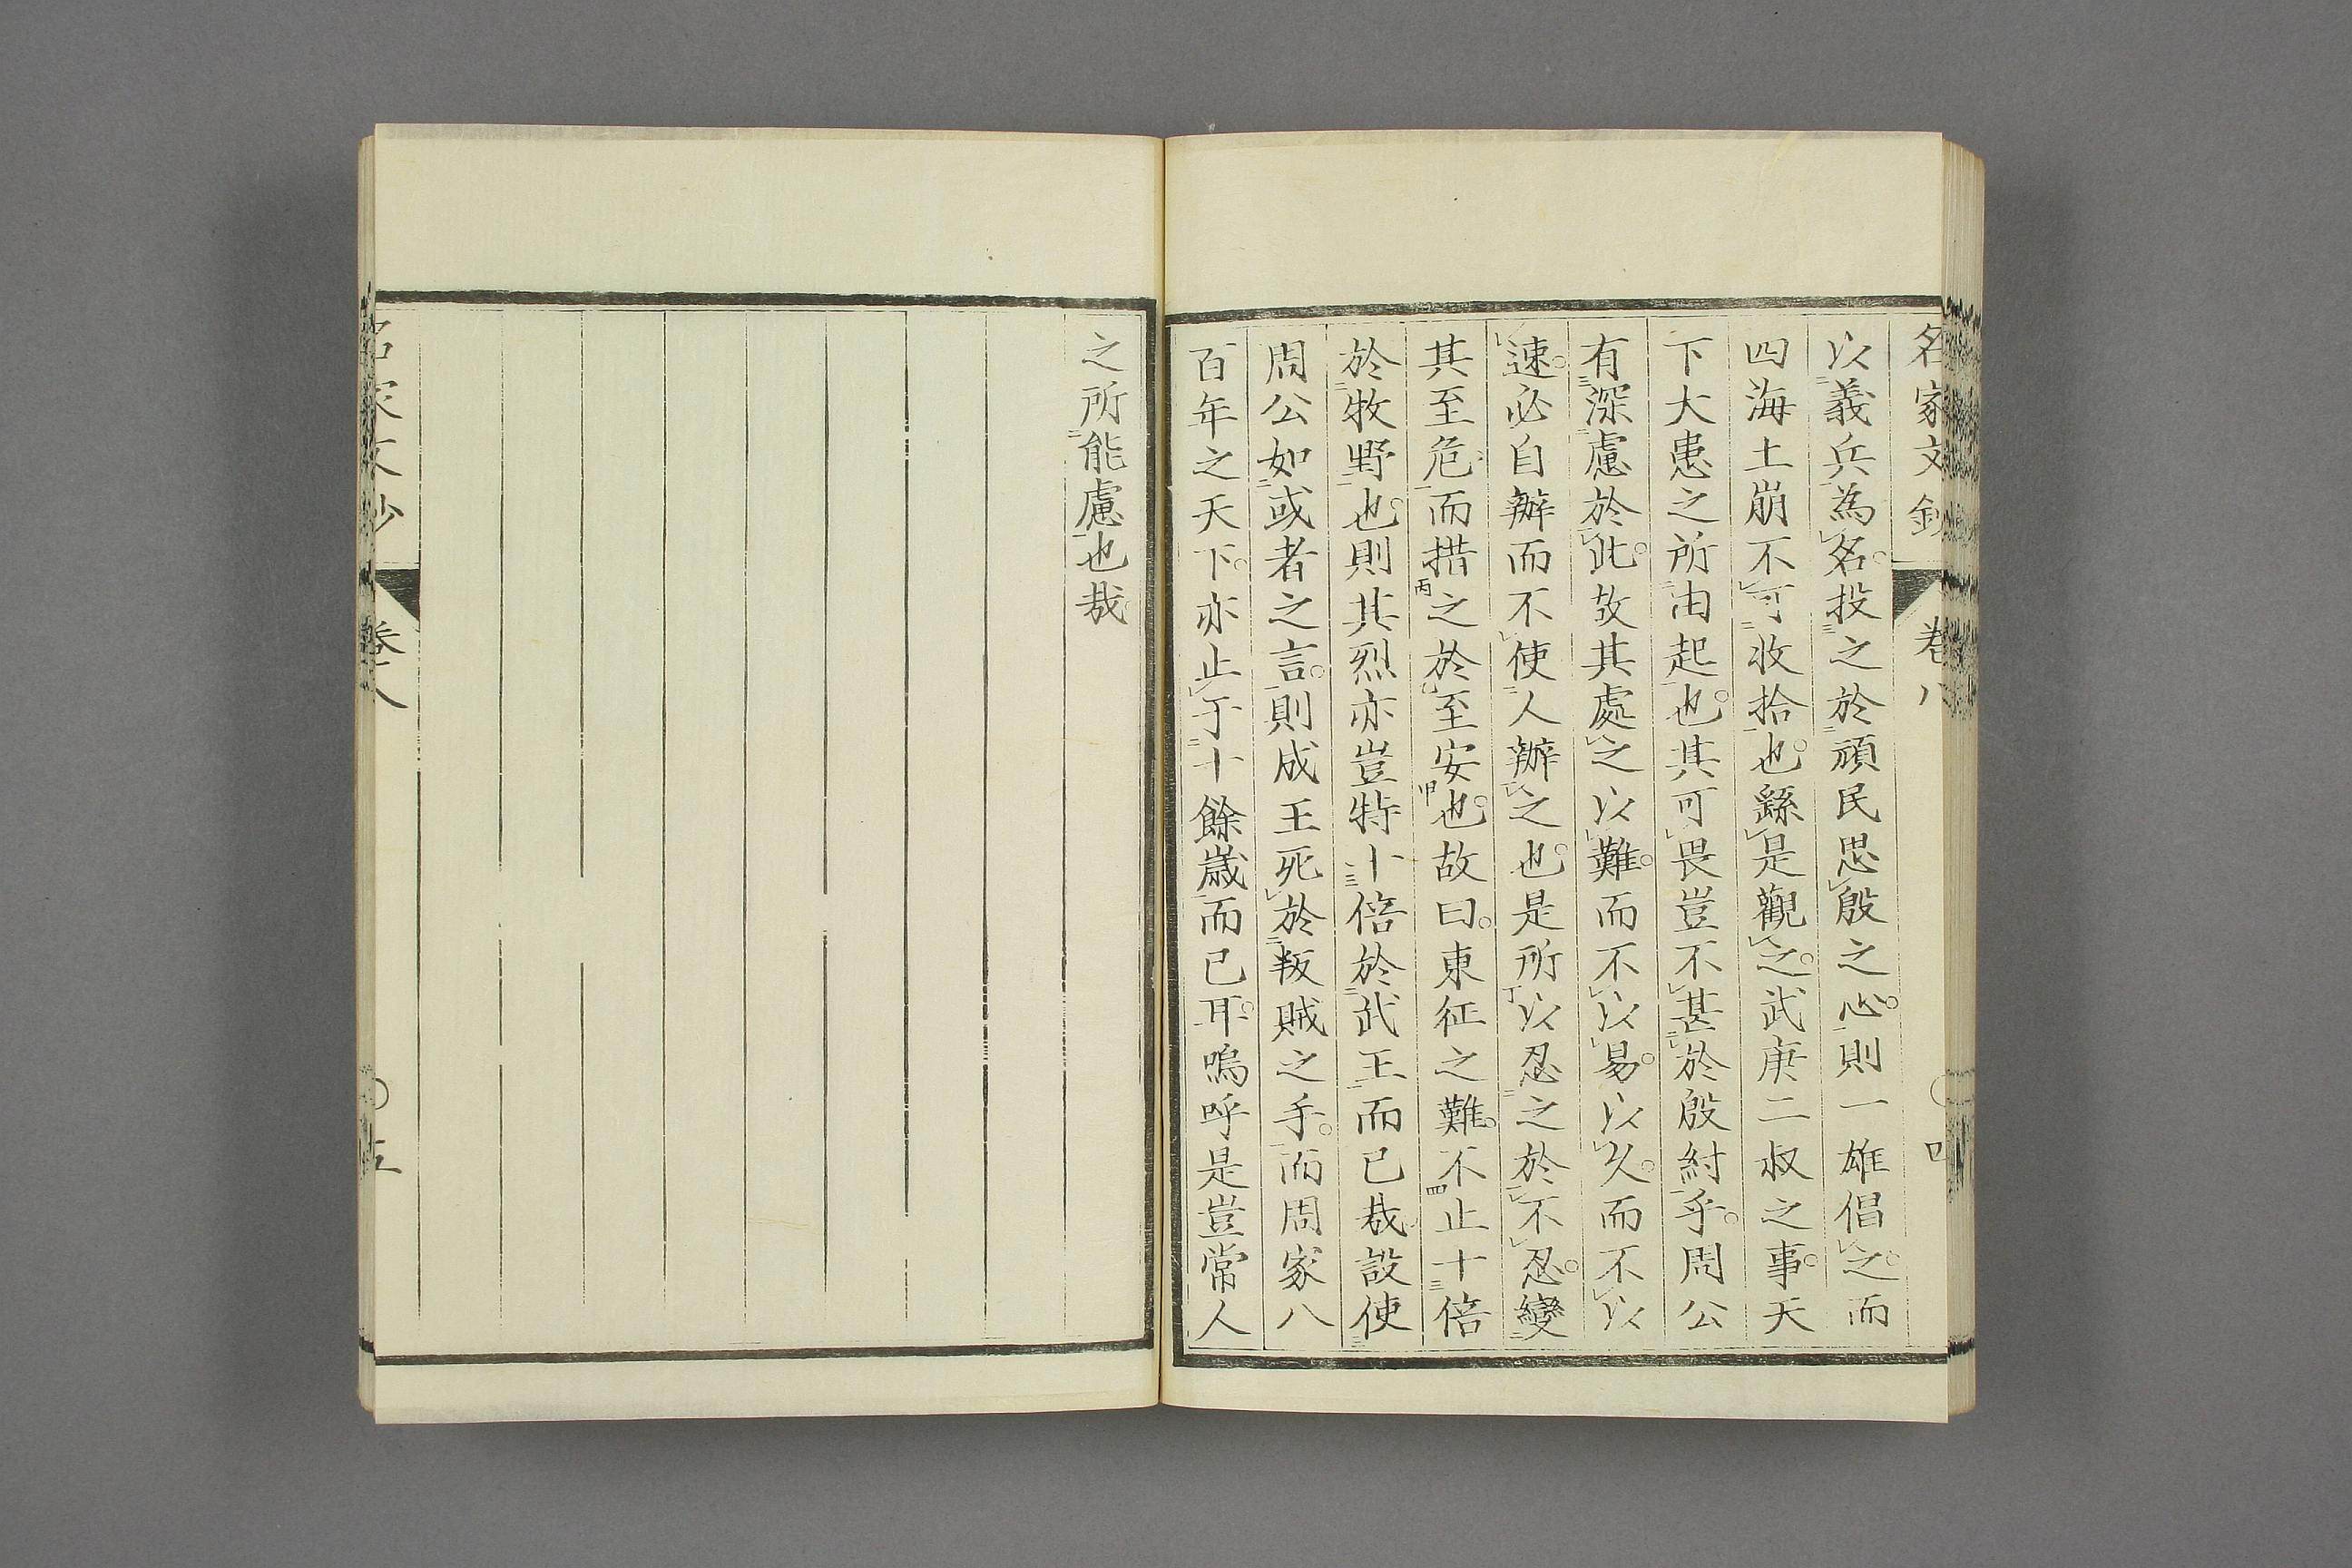 名家文鈔 卷八 四
以義兵為名投之於頑民思殷之心則一雄倡之而
四海土崩不可收拾也繇是觀之武庚二叔之事天
下大患之所由起也其可畏豈不甚於殷紂乎周公
有深慮於此故其處之以難而不以易以久而不以
速必自辦而不使人辦之也是所以忍之於不忍變
其至危而措之於至安也故曰東征之難不止十倍
於牧野也則其烈亦豈特十倍於武王而已哉設使
周公如或者之言則成王死於叛賊之手而周家八
百年之天下亦止于十餘歲而已耳嗚呼是豈常人
之所能慮也哉
名家文鈔 卷八 五